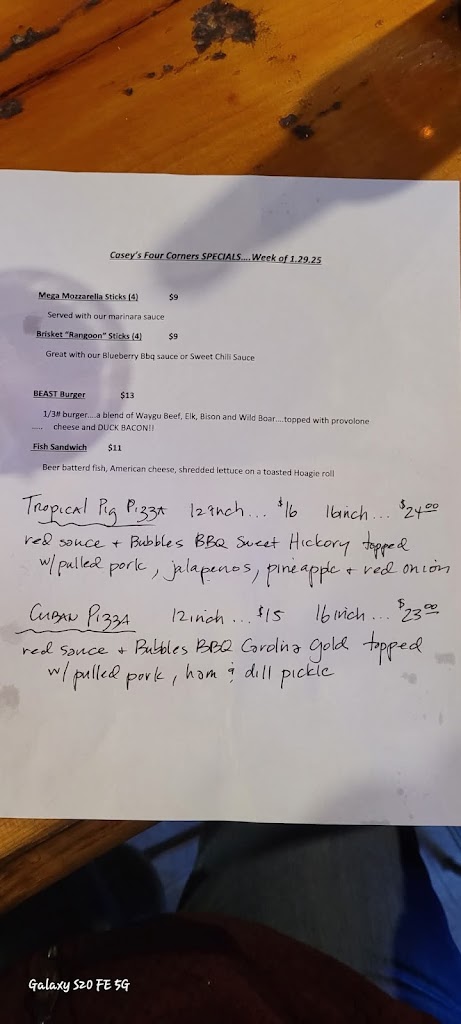 Casey's Four Corners SPECIALS....Week of 1.29.25
Mega Mozzarella Sticks (4) $9
Served with our marinara sauce
Brisket "Rangoon" Sticks (4) $9
Great with our Blueberry Bbq sauce or Sweet Chili Sauce
BEAST Burger $13
1/3# burger....a blend of Waygu Beef, Elk, Bison and Wild Boar....topped with provolone
..... cheese and DUCK BACON!!
Fish Sandwich $11
Beer batterd fish, American cheese, shredded lettuce on a toasted Hoagie roll
Tropical Pig Pizza 12inch... $16 16inch... $24.00
red sauce + Bubbles BBQ Sweet Hickory topped
w/ pulled pork, jalapenos, pineapple + red onion
Cuban Pizza 12inch... $15 16inch... $23.00
red sauce + Bubbles BBQ Carolina Gold topped
w/ pulled pork, ham & dill pickle
Galaxy S20 FE 5G